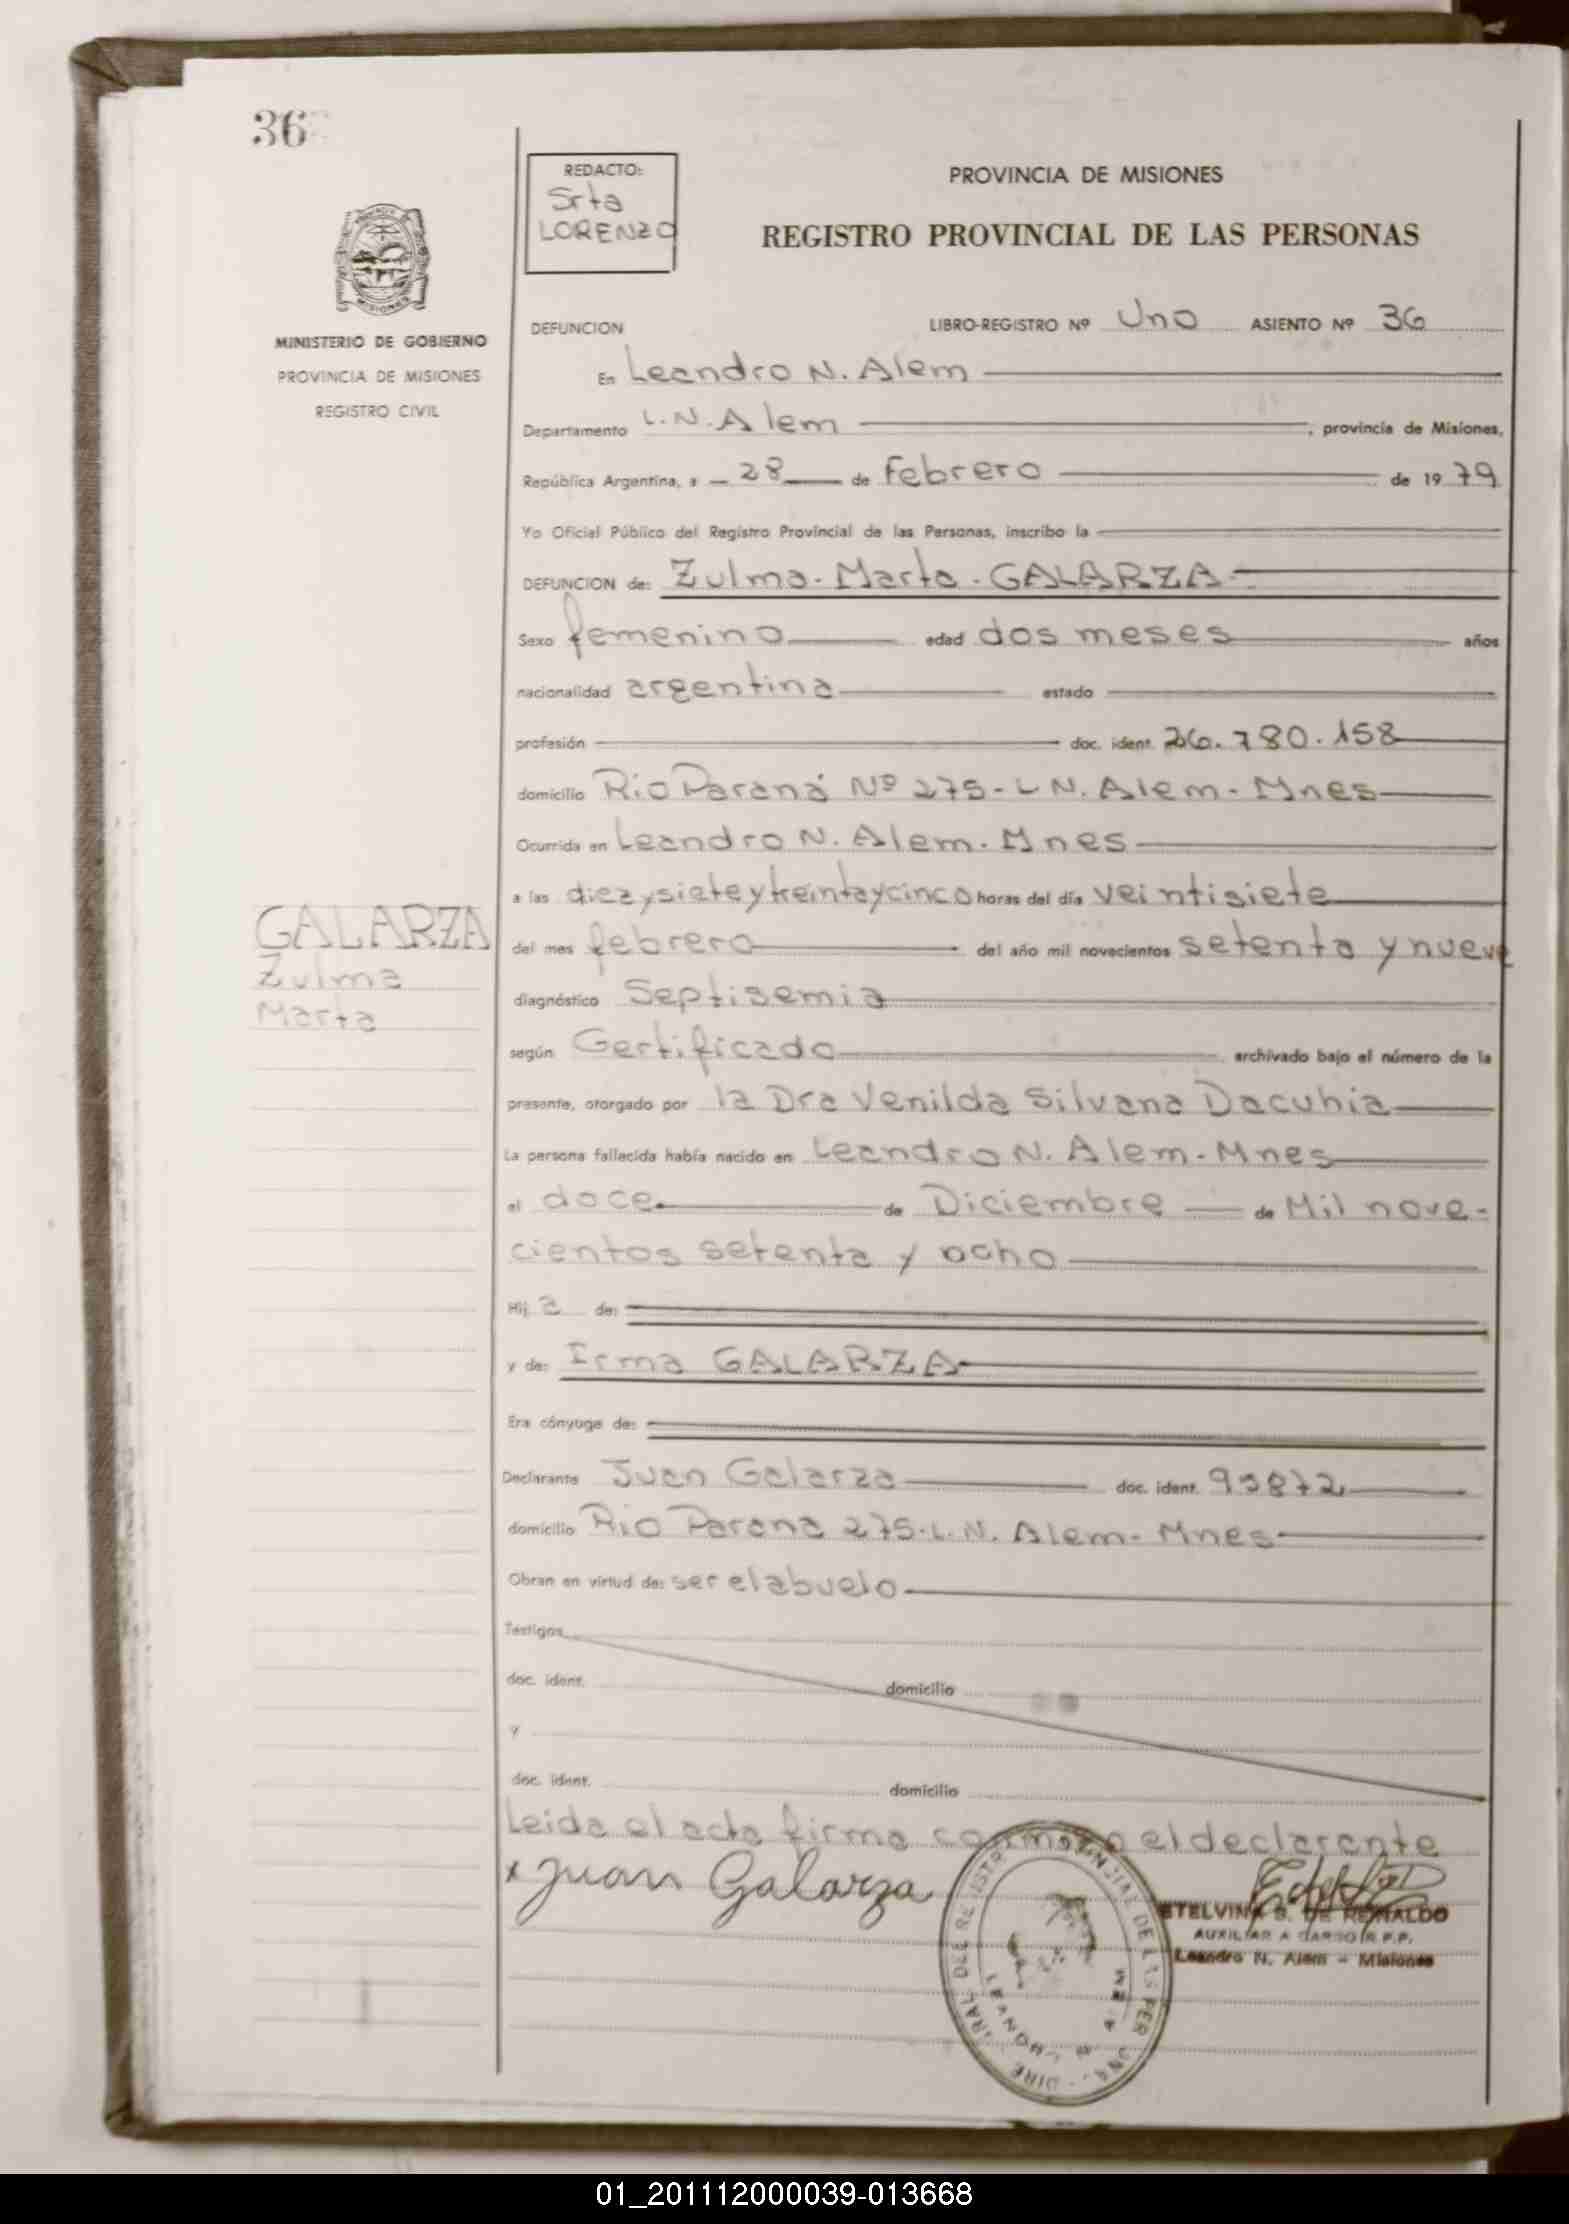 36
REDACTO:
Srta
LORENZO
PROVINCIA DE MISIONES
REGISTRO PROVINCIAL DE LAS PERSONAS
MISIONES
MINISTERIO DE GOBIERNO
PROVINCIA DE MISIONES
REGISTRO CIVIL
DEFUNCION LIBRO-REGISTRO Nº Uno ASIENTO Nº 36
En Leandro N. Alem
Departamento L.N. Alem, provincia de Misiones,
República Argentina, a 28 de Febrero de 1979
Yo Oficial Público del Registro Provincial de las Personas, inscribo la
DEFUNCION de: Zulma. Marta. GALARZA
Sexo femenino edad dos meses años
nacionalidad argentina estado
profesión doc. ident. 26.780.158
domicilio Rio Paraná Nº 275-L N. Alem. Mnes
Ocurrida en Leandro N. Alem. Mnes
a las diez y siete y treinta y cinco horas del día veintisiete
GALARZA
Zulma
Marta
del mes febrero del año mil novecientos setenta y nueve
diagnóstico Septisemia
según Certificado archivado bajo el número de la
presente, otorgado por la Dra Venilda Silvana Dacuhia
La persona fallecida había nacido en Leandro N. Alem. Mnes
el doce de Diciembre de Mil nove-
cientos setenta y ocho
Hij a de:
y de: Irma GALARZA
Era cónyuge de:
Declarante Juan Galarza doc. ident. 93872
domicilio Rio Parana 275-L.N. Alem-Mnes
Obran en virtud de: ser el abuelo
Testigos
doc. ident. domicilio
y
doc. ident. domicilio
Leida el acta firma conmigo el declarante
x Juan Galarza
ETELVINA S. DE REINALDO
AUXILIAR A CARGO R.P.P.
Leandro N. Alem - Misiones
01_201112000039-013668